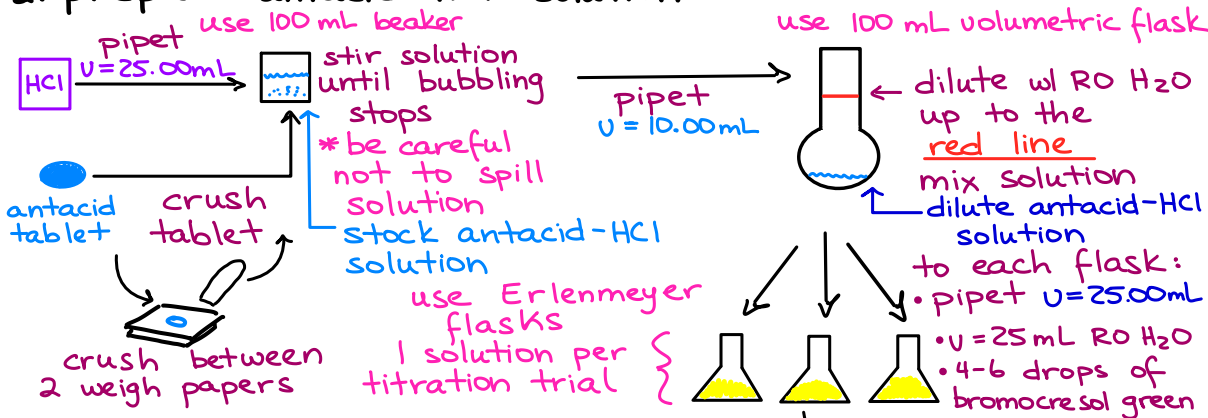 use 100 mL beaker
use 100 mL volumetric flask
HCl
pipet
v=25.00mL
stir solution
until bubbling
stops
* be careful
not to spill
solution
stock antacid-HCl
solution
antacid
tablet
crush
tablet
crush between
2 weigh papers
pipet
v=10.00mL
dilute w/ RO H₂O
up to the
red line
mix solution
dilute antacid-HCl
solution
use Erlenmeyer
flasks
1 solution per
titration trial
to each flask:
• pipet v=25.00mL
• v=25 mL RO H₂O
• 4-6 drops of
bromocresol green